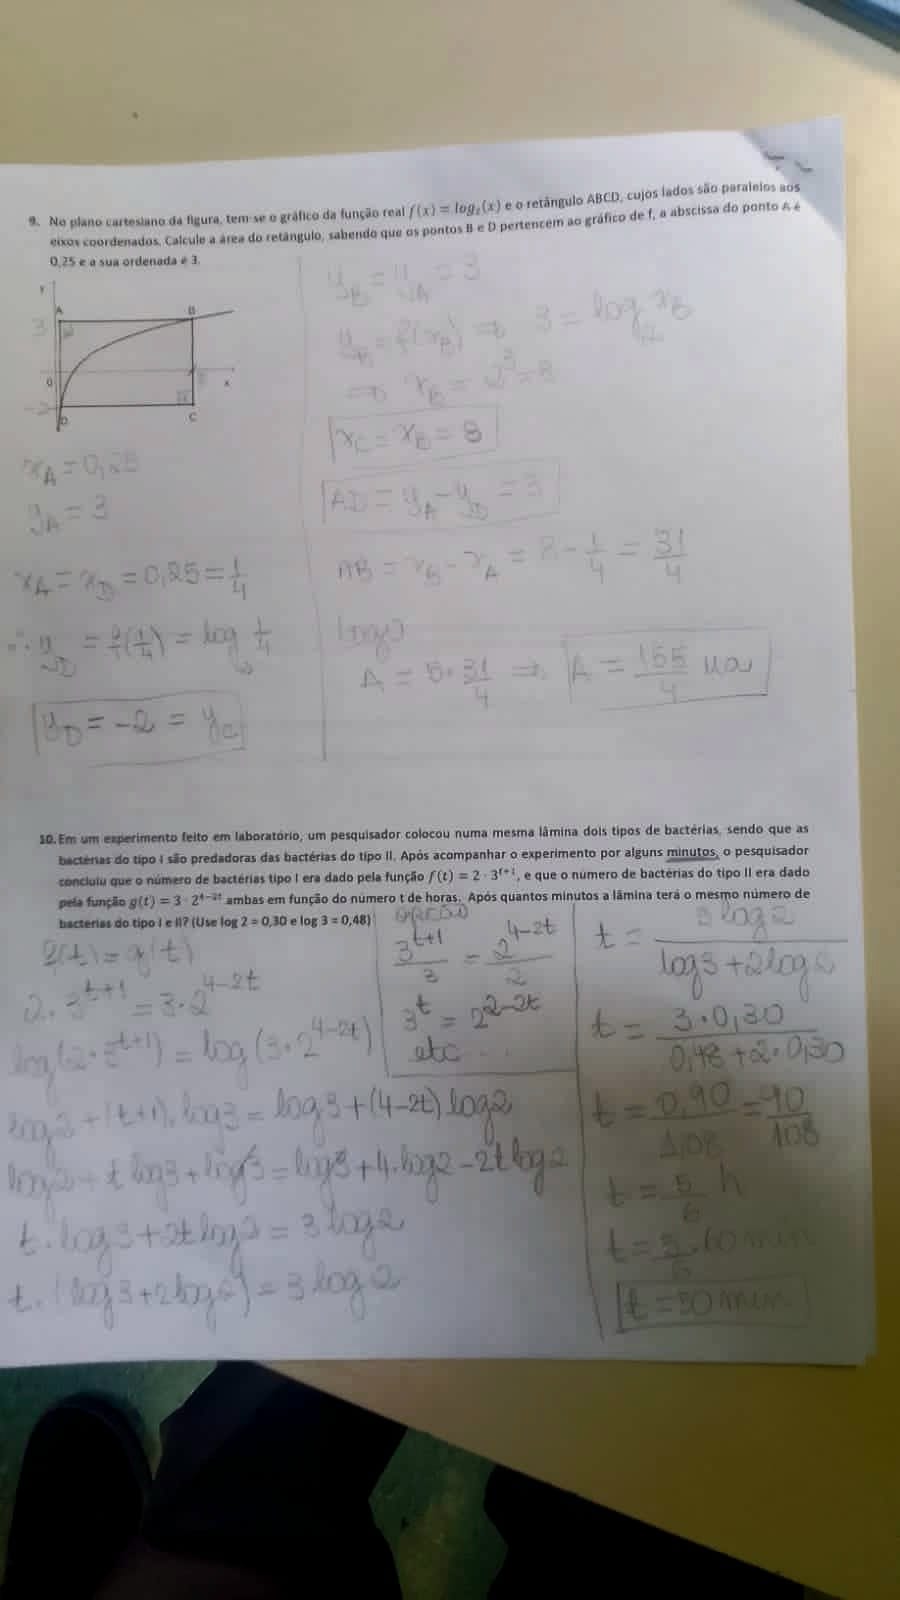 9. No plano cartesiano da figura, tem-se o gráfico da função real f(x) = log₂(x) e o retângulo ABCD, cujos lados são paralelos aos
eixos coordenados. Calcule a área do retângulo, sabendo que os pontos B e D pertencem ao gráfico de f, a abscissa do ponto A é
0,25 e a sua ordenada é 3.
y
A B
3
0 x
-2
D C
x_A = 0,25
y_A = 3
x_A = x_D = 0,25 = 1/4
∴ y_D = f(1/4) = log₂ 1/4
y_D = -2 = y_C
y_B = y_A = 3
y_B = f(x_B) ⇒ 3 = log₂ x_B
⇒ x_B = 2³ = 8
x_C = x_B = 8
AD = y_A - y_D = 3
AB = x_B - x_A = 8 - 1/4 = 31/4
Logo
A = 5 · 31/4 ⇒ A = 155/4 ua
10. Em um experimento feito em laboratório, um pesquisador colocou numa mesma lâmina dois tipos de bactérias, sendo que as
bactérias do tipo I são predadoras das bactérias do tipo II. Após acompanhar o experimento por alguns minutos, o pesquisador
concluiu que o número de bactérias tipo I era dado pela função f(t) = 2 · 3^(t+1), e que o número de bactérias do tipo II era dado
pela função g(t) = 3 · 2^(4-2t) ambas em função do número t de horas. Após quantos minutos a lâmina terá o mesmo número de
bactérias do tipo I e II? (Use log 2 = 0,30 e log 3 = 0,48)
f(t) = g(t)
2 · 3^(t+1) = 3 · 2^(4-2t)
log(2 · 3^(t+1)) = log(3 · 2^(4-2t))
log2 + (t+1) · log3 = log3 + (4-2t) log2
log2 + t log3 + log3 = log3 + 4 · log2 - 2t log2
t · log3 + 2t log2 = 3 log2
t · (log3 + 2log2) = 3 log2
OPÇÃO
3^(t+1)/3 = 2^(4-2t)/2
3^t = 2^(2-2t)
etc...
t = 3 log2 / (log3 + 2log2)
t = 3 · 0,30 / (0,48 + 2 · 0,30)
t = 0,90/1,08 = 90/108
t = 5/6 h
t = 5/6 · 60 min
t = 50 min